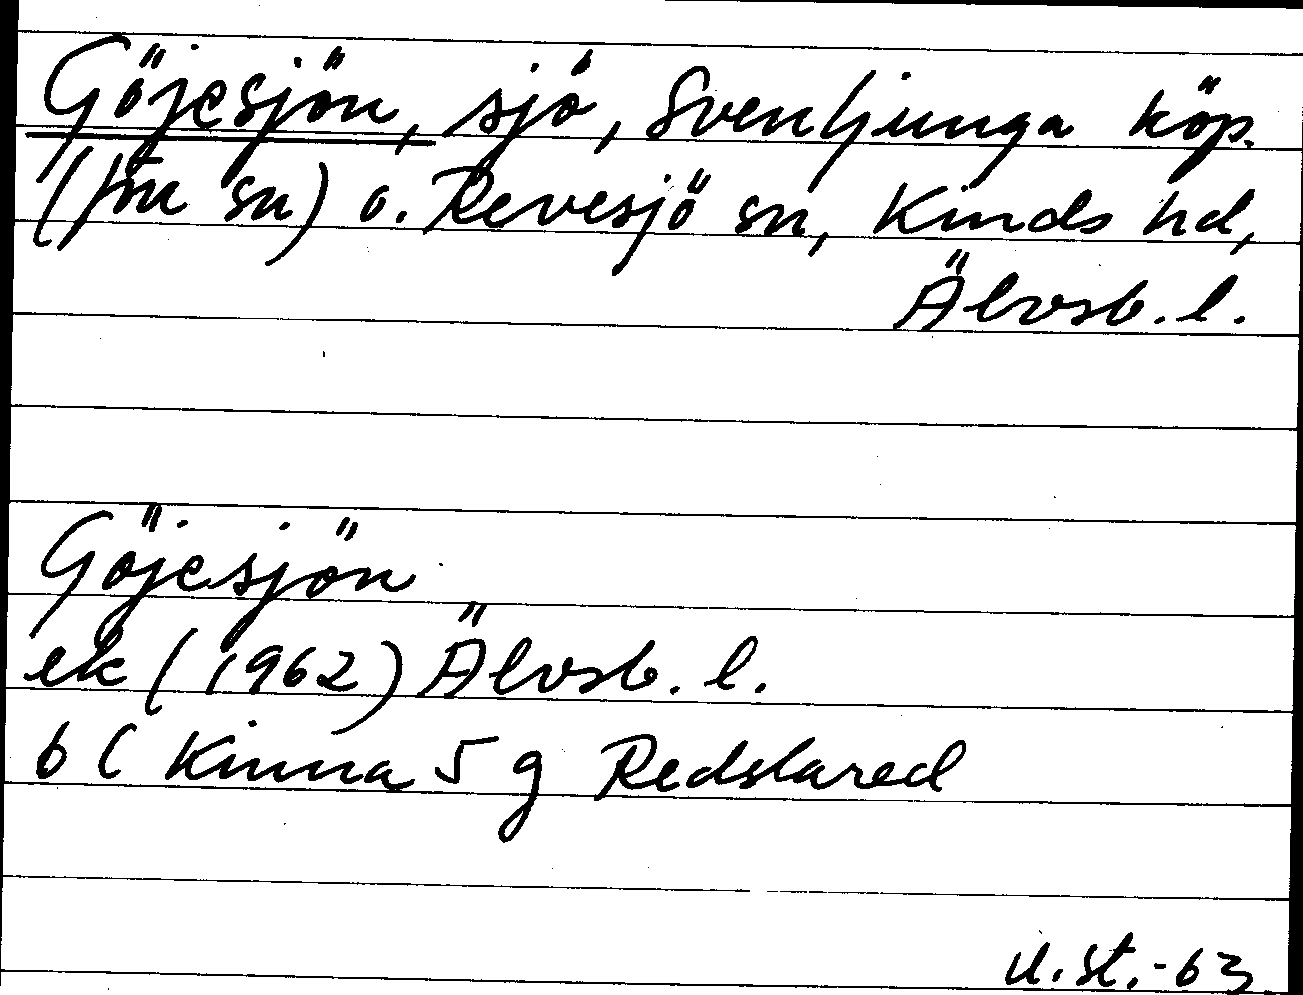 Göjesjön, sjö, Svenljunga köp.
(fm sn) o. Revesjö sn, Kinds hd,
Älvsb. l.
Göjesjön
ek (1962) Älvsb. l.
6 C Kinna 5 g Redslared
U.St.-63